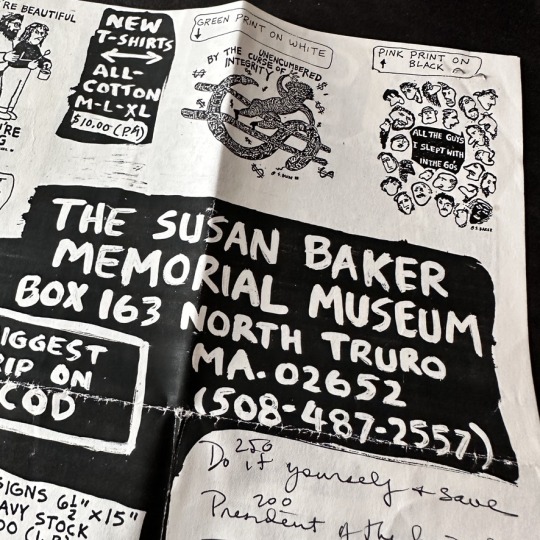 RE BEAUTIFUL
NEW
T-SHIRTS
ALL-
COTTON
M-L-XL
$10.00 (P.P.)
GREEN PRINT ON WHITE
BY THE CURSE OF
UNENCUMBERED
INTEGRITY
PINK PRINT ON
BLACK
ALL THE GUYS
I SLEPT WITH
IN THE 60'S
© S. BAKER
THE SUSAN BAKER
MEMORIAL MUSEUM
BOX 163 NORTH TRURO
MA. 02652
(508-487-2557)
IGGEST
RIP ON
COD
250
Do it yourself + save
200
President of the
SIGNS 6½" X 15"
AVY STOCK